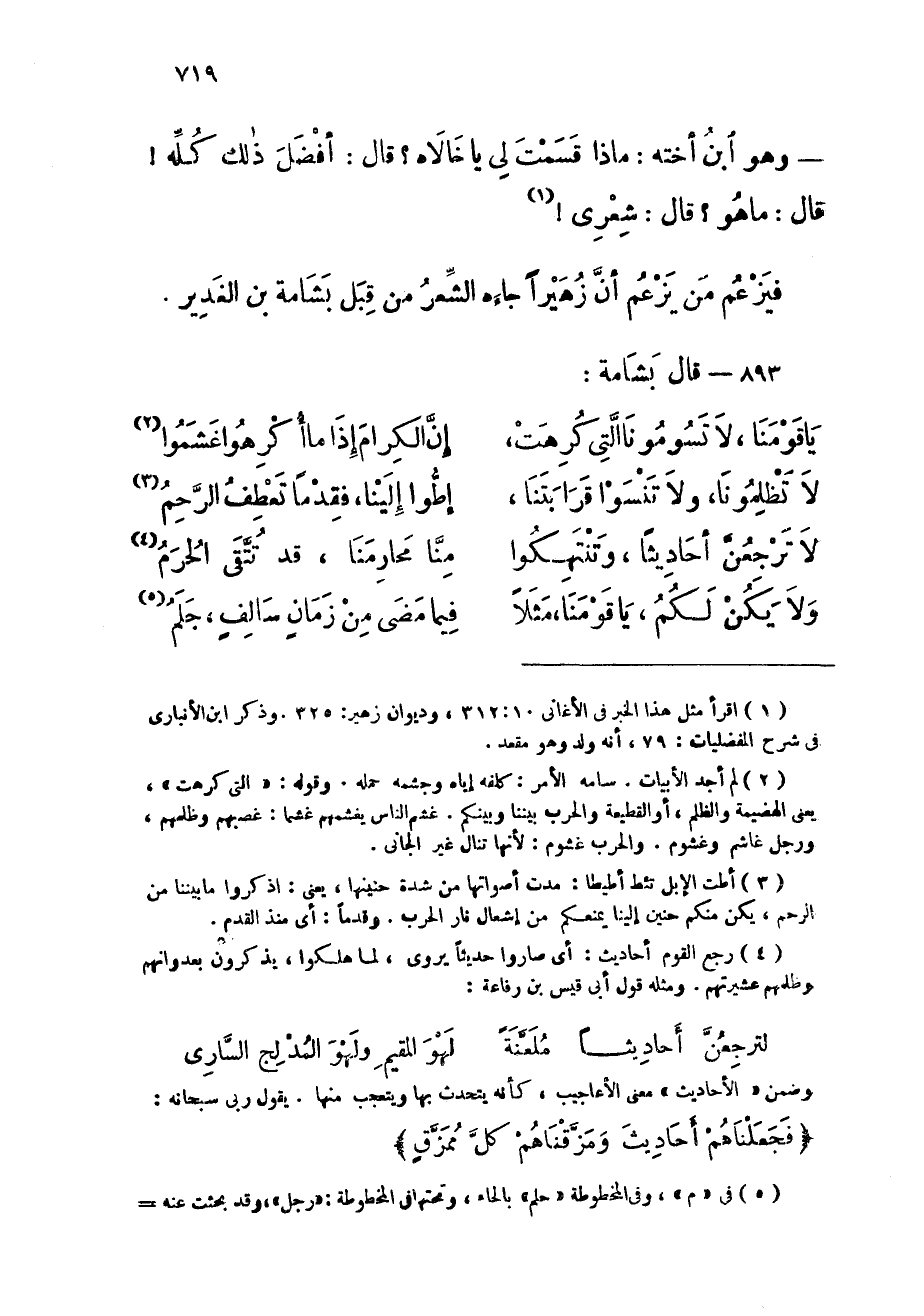 ٧١٩
— وهو ٱبنُ أخته : ماذا قَسَمْتَ لِي يا خَالَاه ؟ قال : أفْضَلَ ذٰلك كُلِّه !
قال : ماهُو ؟ قال : شِعْرِى !(١)
فيَزْعُم مَن يَزْعُم أنَّ زُهَيْراً جاءه الشِّعرُ من قِبَل بَشَامة بن الغَدِير .
٨٩٣ — قال بَشَامة :
يَاقَوْمَنَا ، لاَ تَسُومُونَا الَّتِي كُرِهَتْ ، إنَّ الكِرامَ إذَا ما أُكْرِهُوا غَشَمُوا(٢)
لاَ تَظْلِمُونَا، ولاَ تَنْسَوْا قَرَابَتَنَا ، إطُّوا إلَيْنَا، فقِدْماً تَعْطِفُ الرَّحِمُ(٣)
لاَ تَرْجِعُنَّ أحَادِيثًا ، وَتَنْتَهِكُوا مِنَّا مَحارِمَنَا ، قد تُتَّقَى الحُرَمُ(٤)
وَلاَ يَكُنْ لَكُمُ ، يَاقَوْمَنَا، مَثَلاً فِيما مَضَى مِنْ زَمَانٍ سَالِفٍ ، جَلَمُ(٥)
( ١ ) اقرأ مثل هذا الخبر فى الأغانى ١٠ : ٣١٢ ، وديوان زهير : ٣٢٥ . وذكر ابن الأنبارى
فى شرح المفضليات : ٧٩ ، أنه ولد وهو مقعد .
( ٢ ) لم أجد الأبيات . سامه الأمر : كلفه إياه وجشمه حمله . وقوله : « التى كرهت » ،
يعنى الهضيمة والظلم ، أو القطيعة والحرب بيننا وبينكم . غشم الناس يغشمهم غشما : غصبهم وظلمهم ،
ورجل غاشم وغشوم . والحرب غشوم : لأنها تنال غير الجانى .
( ٣ ) أطت الإبل تئط أطيطا : مدت أصواتها من شدة حنينها ، يعنى : اذكروا مابيننا من
الرحم ، يكن منكم حنين إلينا يمنعكم من إشعال نار الحرب . وقدماً : أى منذ القدم .
( ٤ ) رجع القوم أحاديث : أى صاروا حديثاً يروى ، لما هلكوا ، يذكرون بعدوانهم
وظلمهم عشيرتهم . ومثله قول أبى قيس بن رفاعة :
لترجِعُنَّ أَحادِيثًا مُلَعَّنَةً لَهْوَ المقيمِ ولَهْوَ المُدْلِجِ السَّارِى
وضمن « الأحاديث » معنى الأعاجيب ، كأنه يتحدث بها ويتعجب منها . يقول ربى سبحانه :
﴿ فَجَعَلْنَاهُمْ أَحَادِيثَ وَمَزَّقْنَاهُمْ كلَّ مُمَزَّقٍ ﴾
( ٥ ) فى « م » ، وفى المخطوطة « حلم » بالحاء ، وتحتها فى المخطوطة : «رجل»، وقد بحثت عنه =